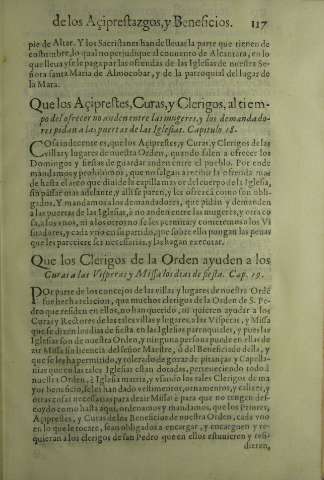 de los Açiprestazgos, y Beneficios. 117
pie de Altar. Y los Sacristanes han de lleuar la parte que tienen de
costumbre, lo qual no perjudique al encuentro de Alcantara, en lo
que lleua y se le paga por las ofrendas de las Iglesias de nuestra Se
ñora santa Maria de Almocobar, y de la parroquial del lugar de
la Mata.
Que los Açiprestes, Curas, y Clerigos, al tiem-
po del ofrecer no anden entre las mugeres, y los demandado-
res pidan a las puertas de las Iglesias. Capitulo 18.
Cosa indecente es, que los Açiprestes, y Curas, y Clerigos de las
villas y lugares de nuestra Orden, quando salen a ofrecer los
Domingos y fiestas de guardar anden entre el pueblo. Por ende
mandamos y prohibimos, que no salgan a recibir la ofrenda mas
de hasta el arco que diuide la capilla mayor del cuerpo de la Iglesia,
sin passar mas adelante y alli se paren, y les ofrezca como son obli-
gados. Y mandamos a los demandadores, que pidan y demanden
a las puertas de las Iglesias, y no anden entre las mugeres, y otra co
sa, a los vnos, ni a los otros no se les permita y cometemos a los Vi
sitadores, y cada vno en su partido, que sobre ello pongan las penas
que les pareciere ser necessarias, y las hagan executar.
Que los Clerigos de la Orden ayuden a los
Curas a las Visperas y Missa los dias de fiesta. Cap. 19.
Por parte de los concejos de las villas y lugares de nuestra Ordē
fue hecha relacion, que muchos clerigos de la Orden de S. Pe-
dro que residen en ellos, no han querido, ni quieren ayudar a los
Curas y Rectores de las tales villas y lugares, a las Visperas, y Missa
que se dizen los dias de fiesta en las Iglesias parroquiales, y pues las
Iglesias son de nuestra Orden, y ninguna persona puede en ellas de
zir Missa sin licencia del señor Maestre, ò del Beneficiado della, y
que se les ha permitido, y tolerado de gozar de pitanças y Capella-
nias que en las tales Iglesias estan dotadas, perteneciendo todo à
nuestra Orden, è Iglesia matriz, y visando los tales Clerigos de ma
yor beneficio, se les han dado vestimentos, ornamentos, y calizes, y
otras cosas necessarias para dezir Missa: è para que no tengan des-
cuydo como hasta aqui, ordenamos y mandamos, que los Priores,
Açiprestes, y Curas de los Beneficios de nuestra Orden, cada vno
en lo que le tocare, sean obligados a encargar, y encarguen y re-
quieran a los clerigos de san Pedro que en ellos estuuieren y resi-
dieren,